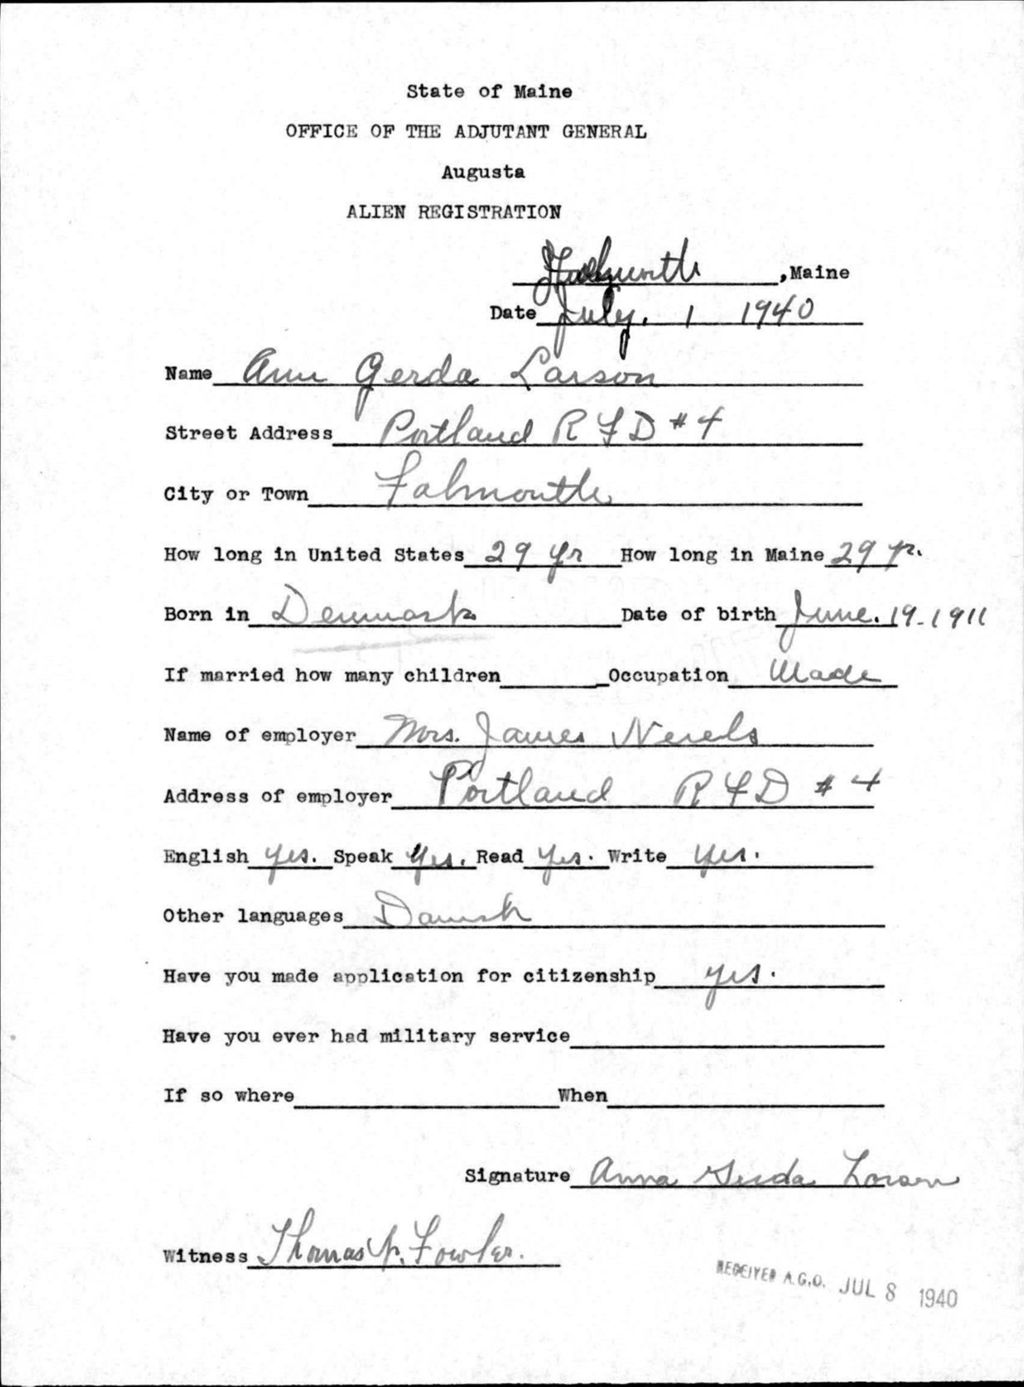 State of Maine
OFFICE OF THE ADJUTANT GENERAL
Augusta
ALIEN REGISTRATION
Falmouth, Maine
Date July. 1 1940
Name Ann Gerda Larson
Street Address Portland R F D #4
City or Town Falmouth
How long in United States 29 yr How long in Maine 29 yr.
Born in Denmark Date of birth June. 19-1911
If married how many children Occupation Made
Name of employer Mrs. James
Address of employer Portland R F D #4
English yes. Speak Yes. Read Yes. Write yes.
Other languages Danish
Have you made application for citizenship yes.
Have you ever had military service
If so where When
Signature Anna Gerda Larsen
Witness Thomas P. Fowler.
RECEIVED A.G.O. JUL 8 1940